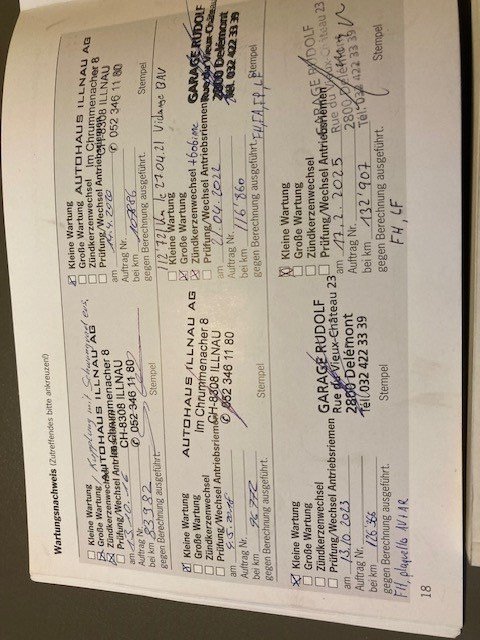 Wartungsnachweis (Zutreffendes bitte ankreuzen!)
Kleine Wartung
Große Wartung, Kupplung mit
Zündkerzenwechsel
Prüfung/Wechsel Antriebsriemen
AUTOHAUS ILLNAU AG
Im Chrummenacher 8
CH-8308 ILLNAU
✆ 052 346 11 80
am
Auftrag Nr.
bei km 83982
Stempel
gegen Berechnung ausgeführt.
Kleine Wartung
Große Wartung
Zündkerzenwechsel
Prüfung/Wechsel Antriebsriemen
AUTOHAUS ILLNAU AG
Im Chrummenacher 8
CH-8308 ILLNAU
✆ 052 346 11 80
am
Auftrag Nr.
bei km
Stempel
gegen Berechnung ausgeführt.
112 721km le 27.04.21 Vidange BAV
Kleine Wartung
Große Wartung
Zündkerzenwechsel
Prüfung/Wechsel Antriebsriemen
AUTOHAUS ILLNAU AG
Im Chrummenacher 8
CH-8308 ILLNAU
✆ 052 346 11 80
am
Auftrag Nr.
bei km
Stempel
gegen Berechnung ausgeführt.
Kleine Wartung
Große Wartung
Zündkerzenwechsel + bobine
Prüfung/Wechsel Antriebsriemen
GARAGE RUDOLF
Rue du Vieux-Château
2800 Delémont
Tél. 032 422 33 39
am 21.04.2022
Auftrag Nr.
bei km 116'860
Stempel
gegen Berechnung ausgeführt.
Kleine Wartung
Große Wartung
Zündkerzenwechsel
Prüfung/Wechsel Antriebsriemen
GARAGE RUDOLF
Rue du Vieux-Château 23
2800 Delémont
Tél. 032 422 33 39
am 13.10.2023
Auftrag Nr.
bei km 126'366
Stempel
gegen Berechnung ausgeführt.
FH, plaquette AV/AR
Kleine Wartung
Große Wartung
Zündkerzenwechsel
Prüfung/Wechsel Antriebsriemen
GARAGE RUDOLF
Rue du Vieux-Château 23
2800 Delémont
Tél. 032 422 33 39
am 17.2.2025
Auftrag Nr.
bei km 132'907
Stempel
gegen Berechnung ausgeführt.
FH, LF
18